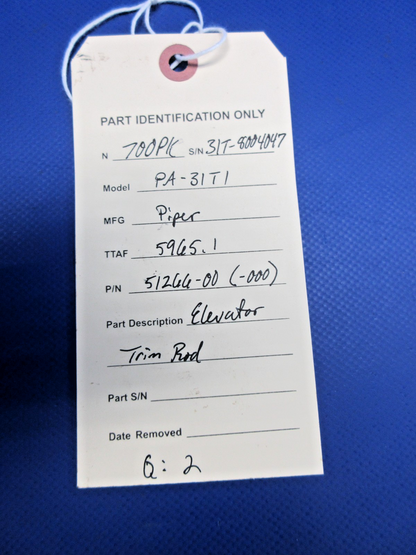 PART IDENTIFICATION ONLY
N 700PK S/N 31T-8004047
Model PA-31T1
MFG Piper
TTAF 5965.1
P/N 51266-00 (-000)
Part Description Elevator
Trim Rod
Part S/N
Date Removed
Q: 2